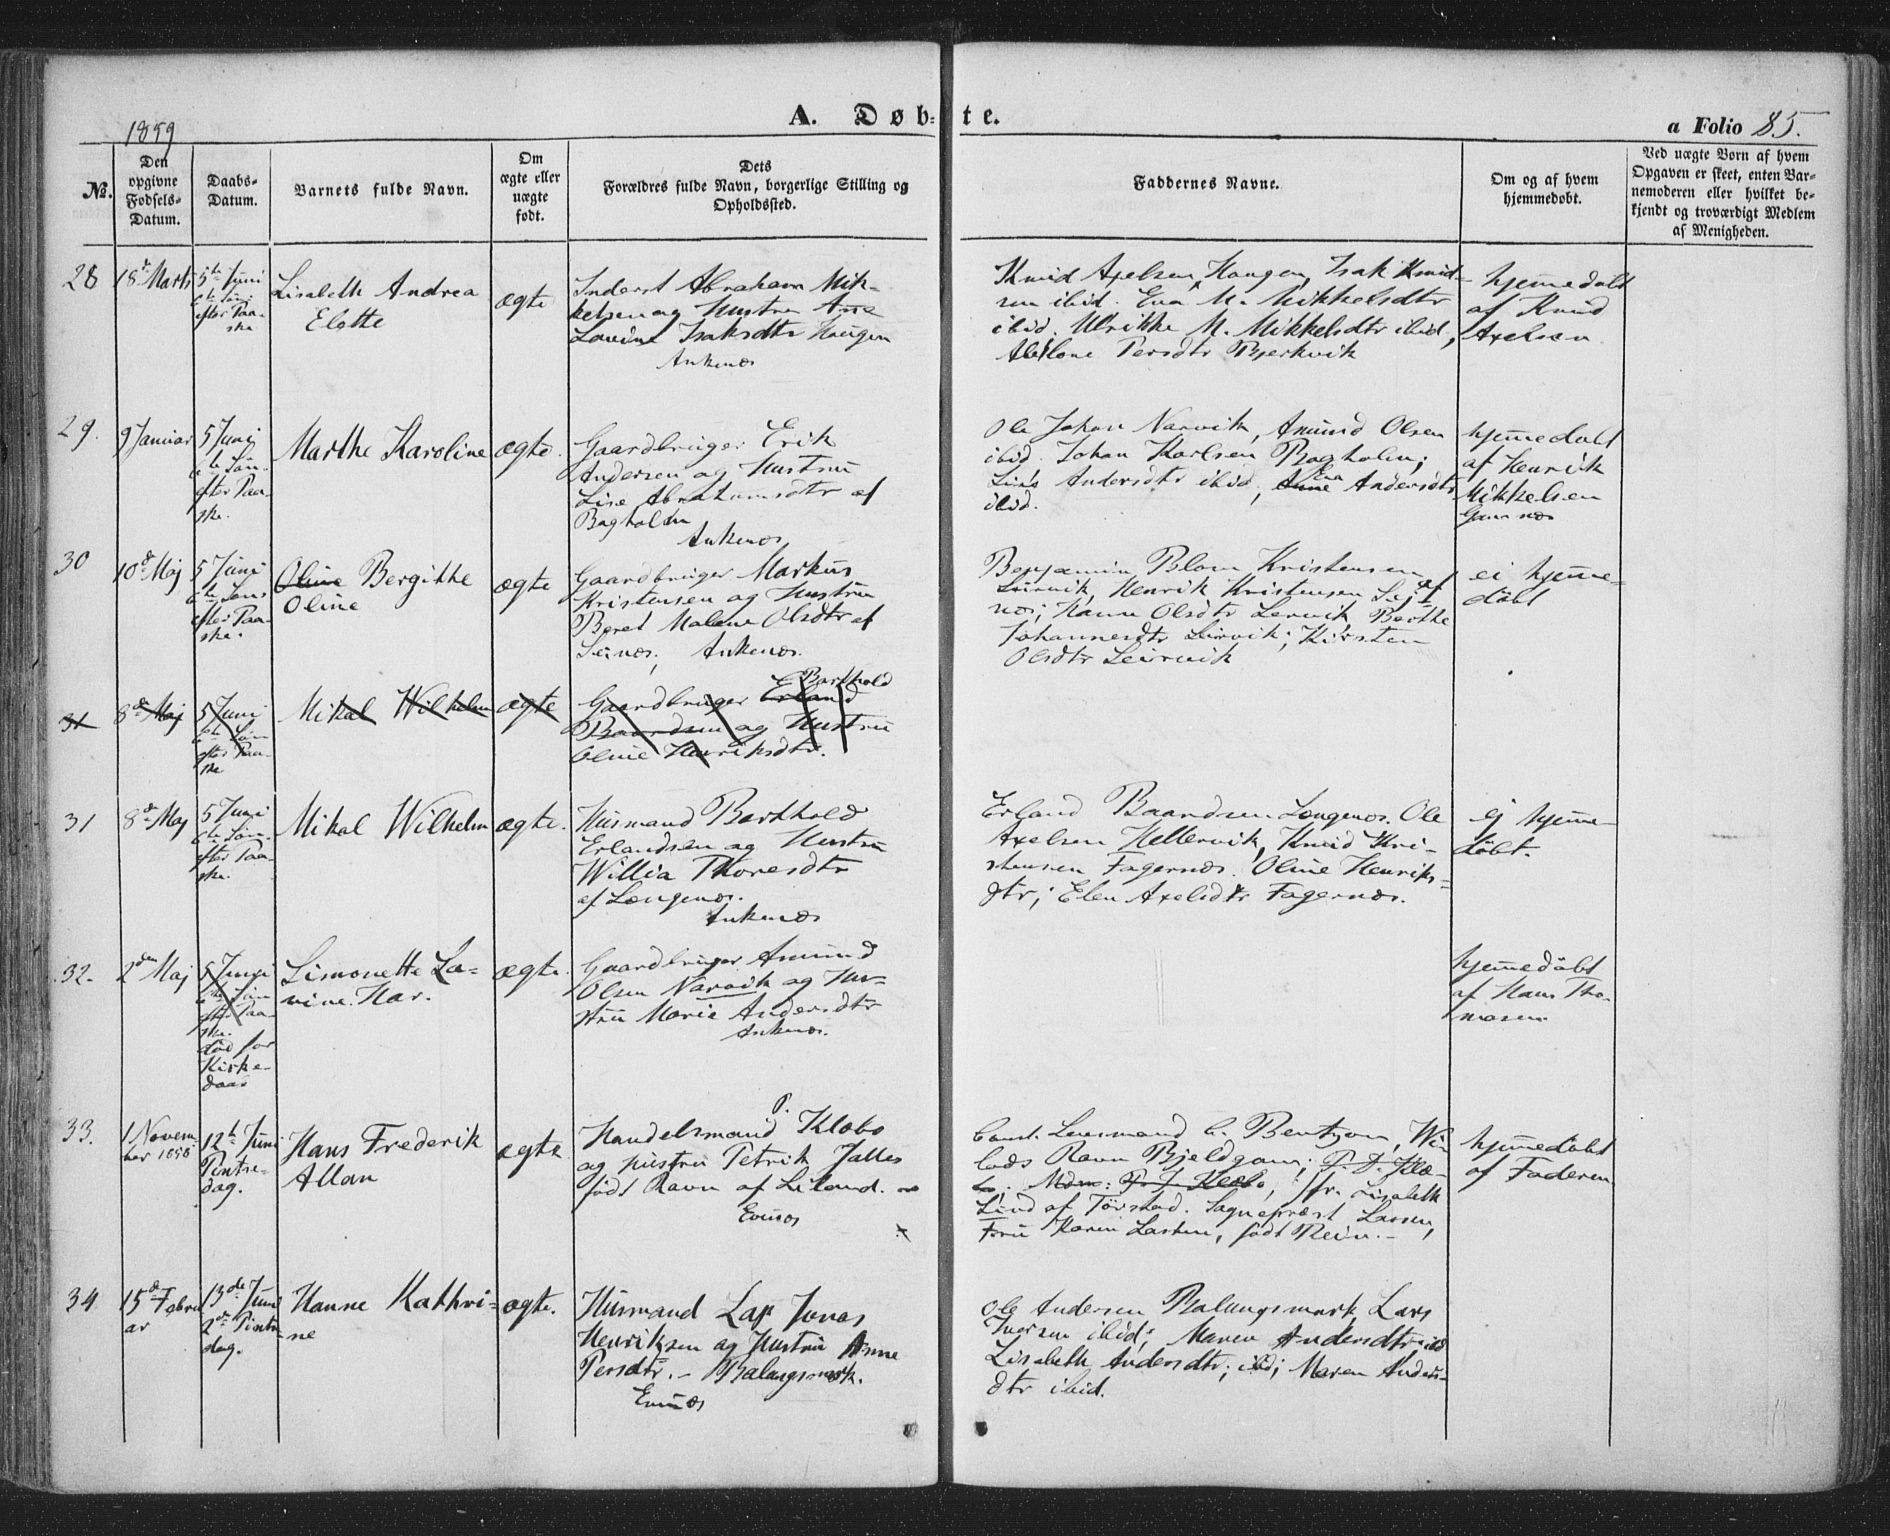 1859
A. Døb-te.
a Folio 85.
No.
Den opgivne Fødsels-Datum.
Daabs-Datum.
Barnets fulde Navn.
Om ægte eller uægte født.
Dets Forældres fulde Navn, borgerlige Stilling og Opholdssted.
Faddernes Navne.
Om og af hvem hjemmedøbt.
Ved uægte Børn af hvem Opgaven er skeet, enten Barnemoderen eller hvilket bekjendt og troværdigt Medlem af Menigheden.
28
18de Marts
5te Juni
6te Søn.
efter Paa-
ske
Lisabeth Andrea
Elotte
ægte
Inderst Abraham Mik-
kelsen og Hustru Ane
Lovine Isaksdtr Haugen
Ankenæs
Knud Axelsen Haugen, Isak Knud-
sen ibid. Eva M. Mikkelsdtr
ibid. Ulrikke M. Mikkelsdtr ibid,
Persdtr Bjerkvik
hjemmedøbt
af Knud
Axelsen
29.
9 Januar
5 Juni
6te Søn.
efter Paa-
ske.
Marthe Karoline
ægte.
Gaardbruger Erik
Andersen og Hustru
Lise Abrahamsdtr af
Bagholm
Ankenæs
Ole Johan Narvik, Amund Olsen
ibid. Johan Karlsen Bagholm;
Andersdtr ibid, Andersdtr
ibid.
hjemmedøbt
af Henrik
Mikkelsen
30
10de Maj
5 Juni
6te Søn.
efter Paa-
ske.
Oline Bergitte
Oline
ægte
Gaardbruger Markus
Kristensen og Hustru
Beret Malene Olsdtr af
Seines, Ankenæs.
Benjamin Blom Kristensen
Leirvik, Henrik Kristensen Sej-
nes; Hanna Olsdtr Lervik Berthe
Johannesdtr Leirvik; Kirsten
Olsdtr Leirvik
ei hjemme-
døbt
31
8de Maj
5 Juni
6te Søn
efter Paa-
ske
Mikal Wilhelm
ægte
Barthold
Gaardbruger Erland
Baardsen og Hustru
Oline Henriksdtr.
31
8de Maj
5 Juni
6te Søn.
efter Paa-
ske.
Mikal Wilhelm
ægte.
Husmand Barthold
Erlandsen og Hustru
Willia Thoresdtr
af Længenæs.
Ankenæs
Erland Baardsen Længenæs. Ole
Axelsen Hellervik, Knud Kri-
stensen Fagernæs. Oline Henriks-
dtr; Elen Axelsdtr Fagernæs.
ej hjemme-
døbt.
32.
2den Maj
5 Juni
6te Søn
efter Paa-
ske.
død før
Kirke-
daab
Simonette La-
vine. Har.
ægte.
Gaardbruger Amund
Olsen Narvik og Hu-
stru Marie Andersdtr
Ankenæs.
hjemmedøbt
af Hans Tho-
masen
33.
1 Novem-
ber 1858
12te Juni
Pintse-
dag.
Hans Frederik
Allan
ægte
P.
Handelsmand Klæbo
og Hustru Petrik Jalles
født Ravn af Liland.
Evenæs
Const. Lensmand Bentzon, Wi-
lads Ravn Bjeldgam; P. D. Klæ-
bo; Mdm: P. J. Klæbo, Jfr. Lisabeth
Lind af Tørstad. Sogneprest Lassen,
Fru Karen Lassen, født Rein.
hjemmedøbt
af Faderen
34
15de Febru
ar
13de Juni
2den Pintse
dag.
Hanne Kathri-
ne
ægte.
Husmand Lap Jonas
Henriksen og Hustru Anne
Persdtr. - Balangsmark.
Evenæs
Ole Andersen Balangsmark, Lars
Iversen ibid; Maren Andersdtr ibid
Lisabeth Andersdtr; ibid; Maren Anders-
dtr ibid.